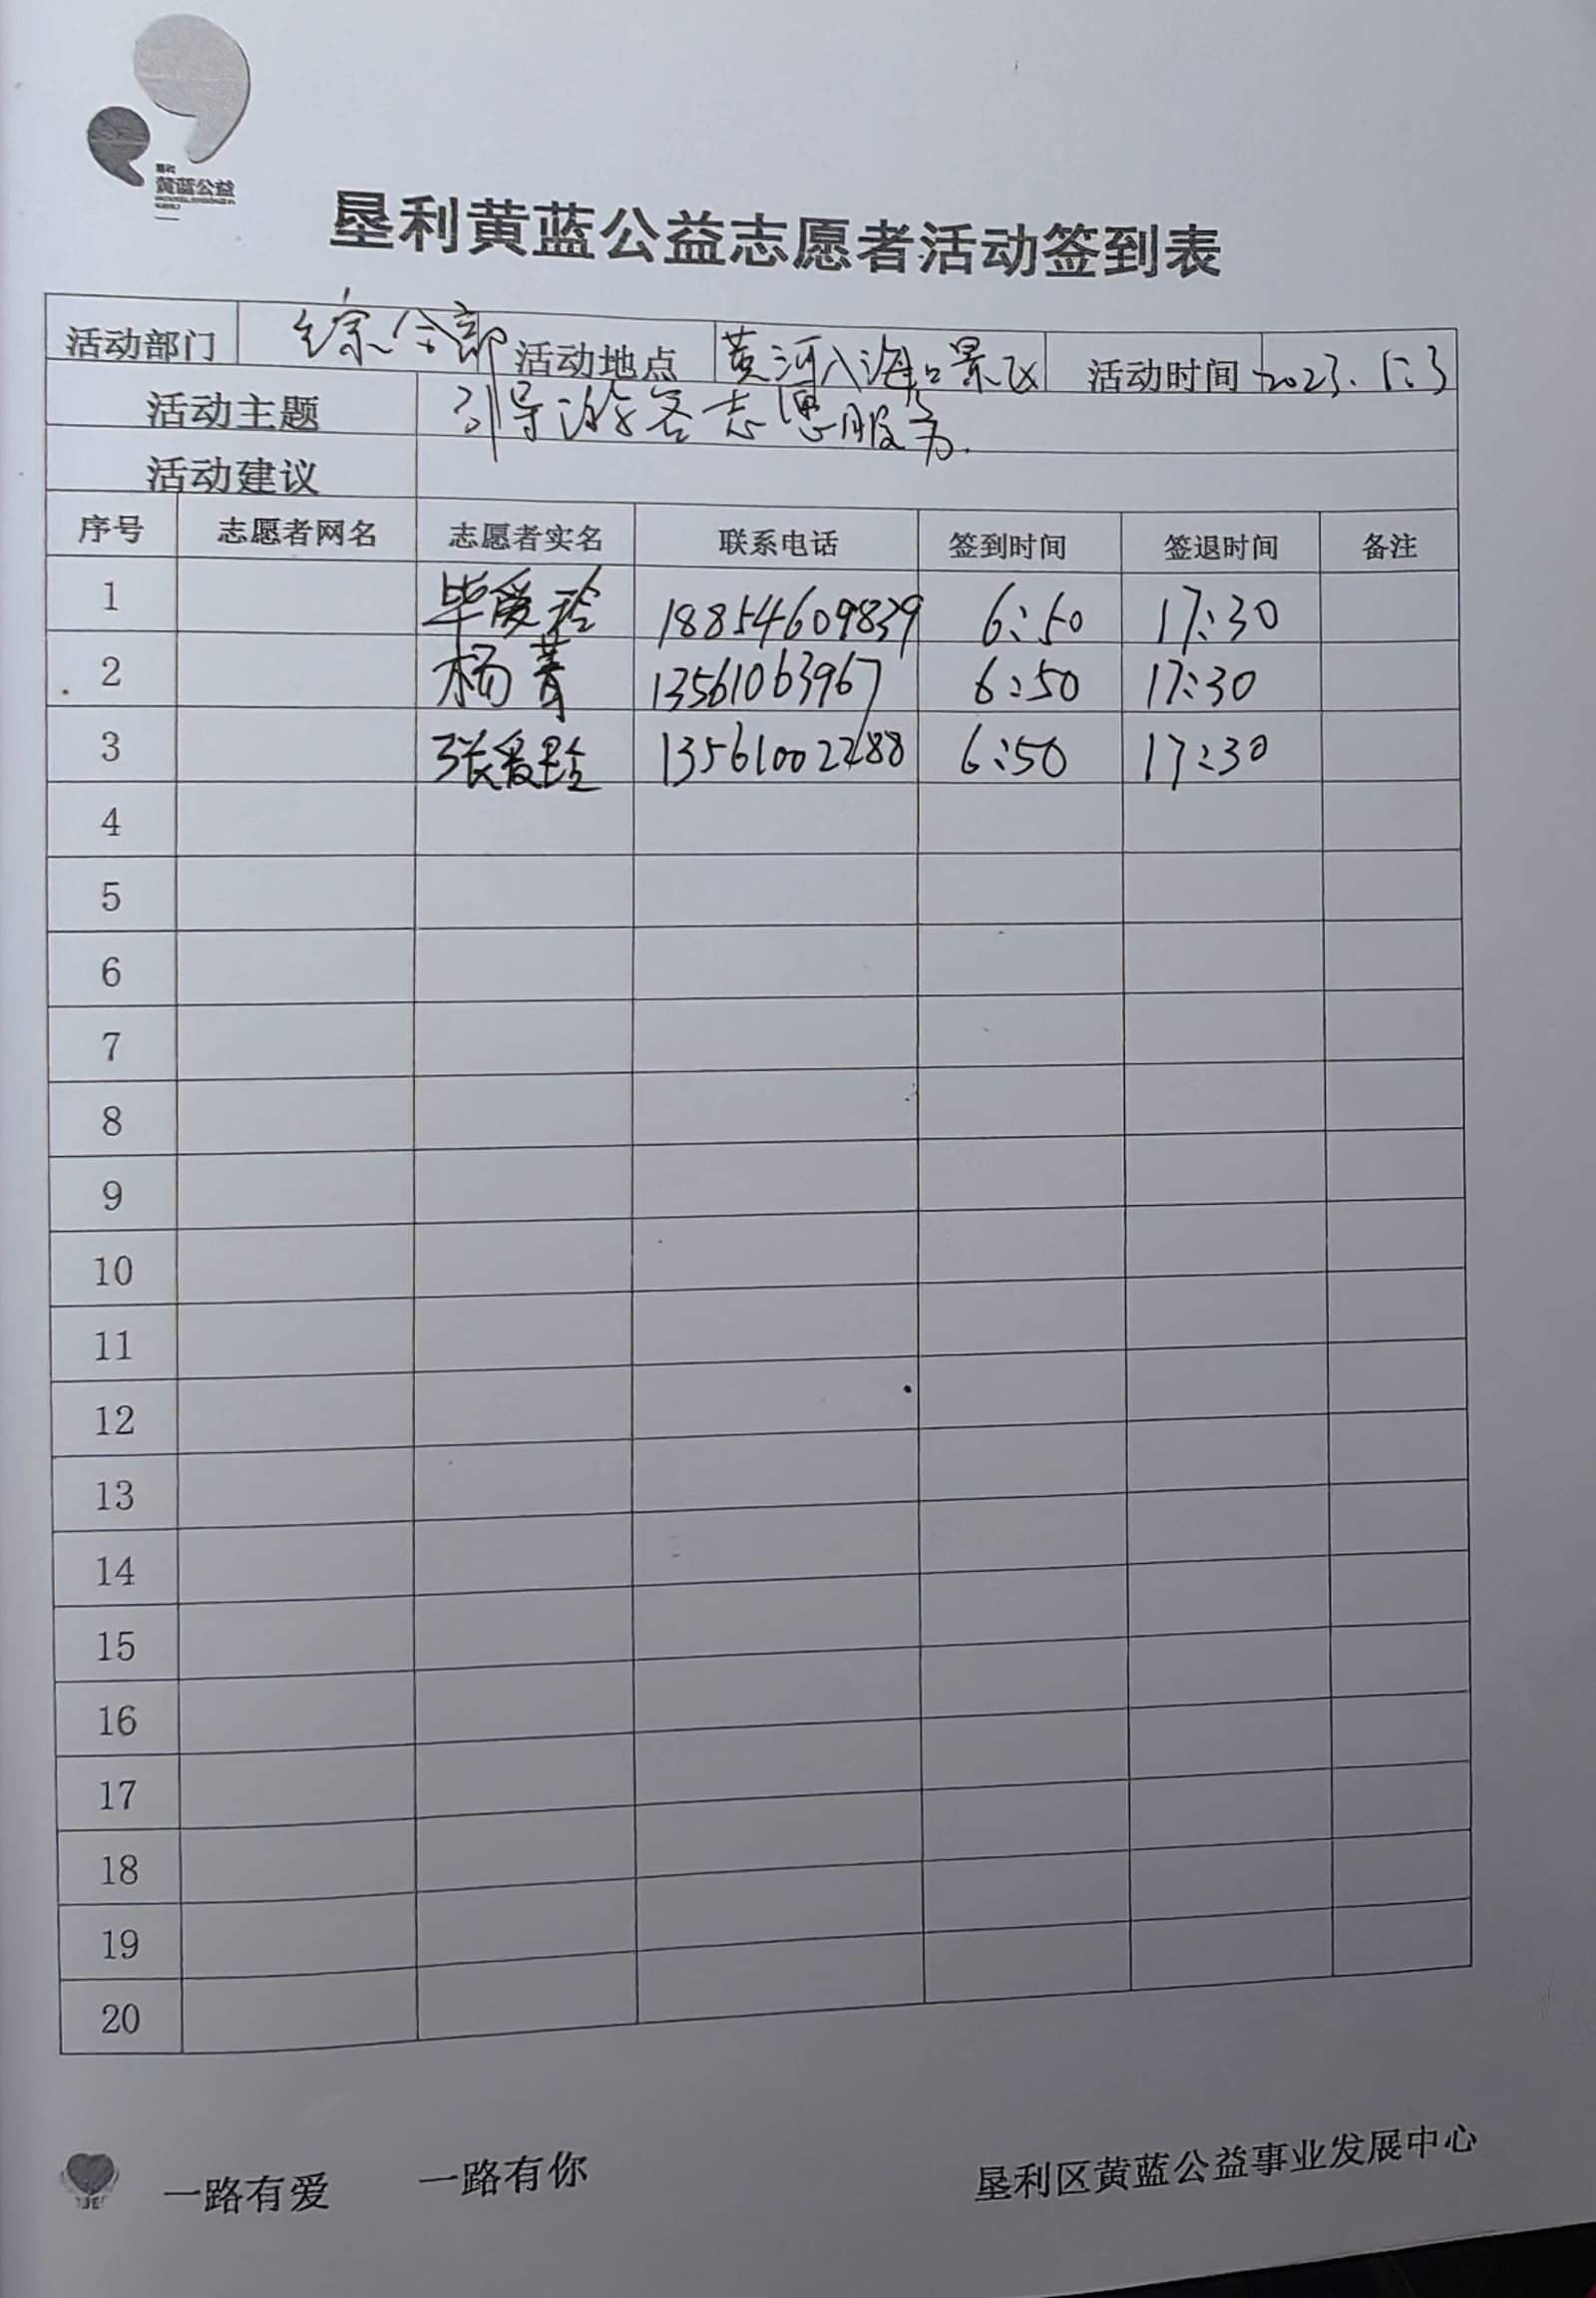 垦利
黄蓝公益
垦利黄蓝公益志愿者活动签到表
活动部门 综合部 活动地点 黄河入海口景区 活动时间 2023.5.3
活动主题 引导游客志愿服务.
活动建议
序号 志愿者网名 志愿者实名 联系电话 签到时间 签退时间 备注
1 毕爱玲 18854609839 6:50 17:30
2 杨菁 13561063967 6:50 17:30
3 张爱玲 13561002288 6:50 17:30
4
5
6
7
8
9
10
11
12
13
14
15
16
17
18
19
20
一路有爱 一路有你 垦利区黄蓝公益事业发展中心